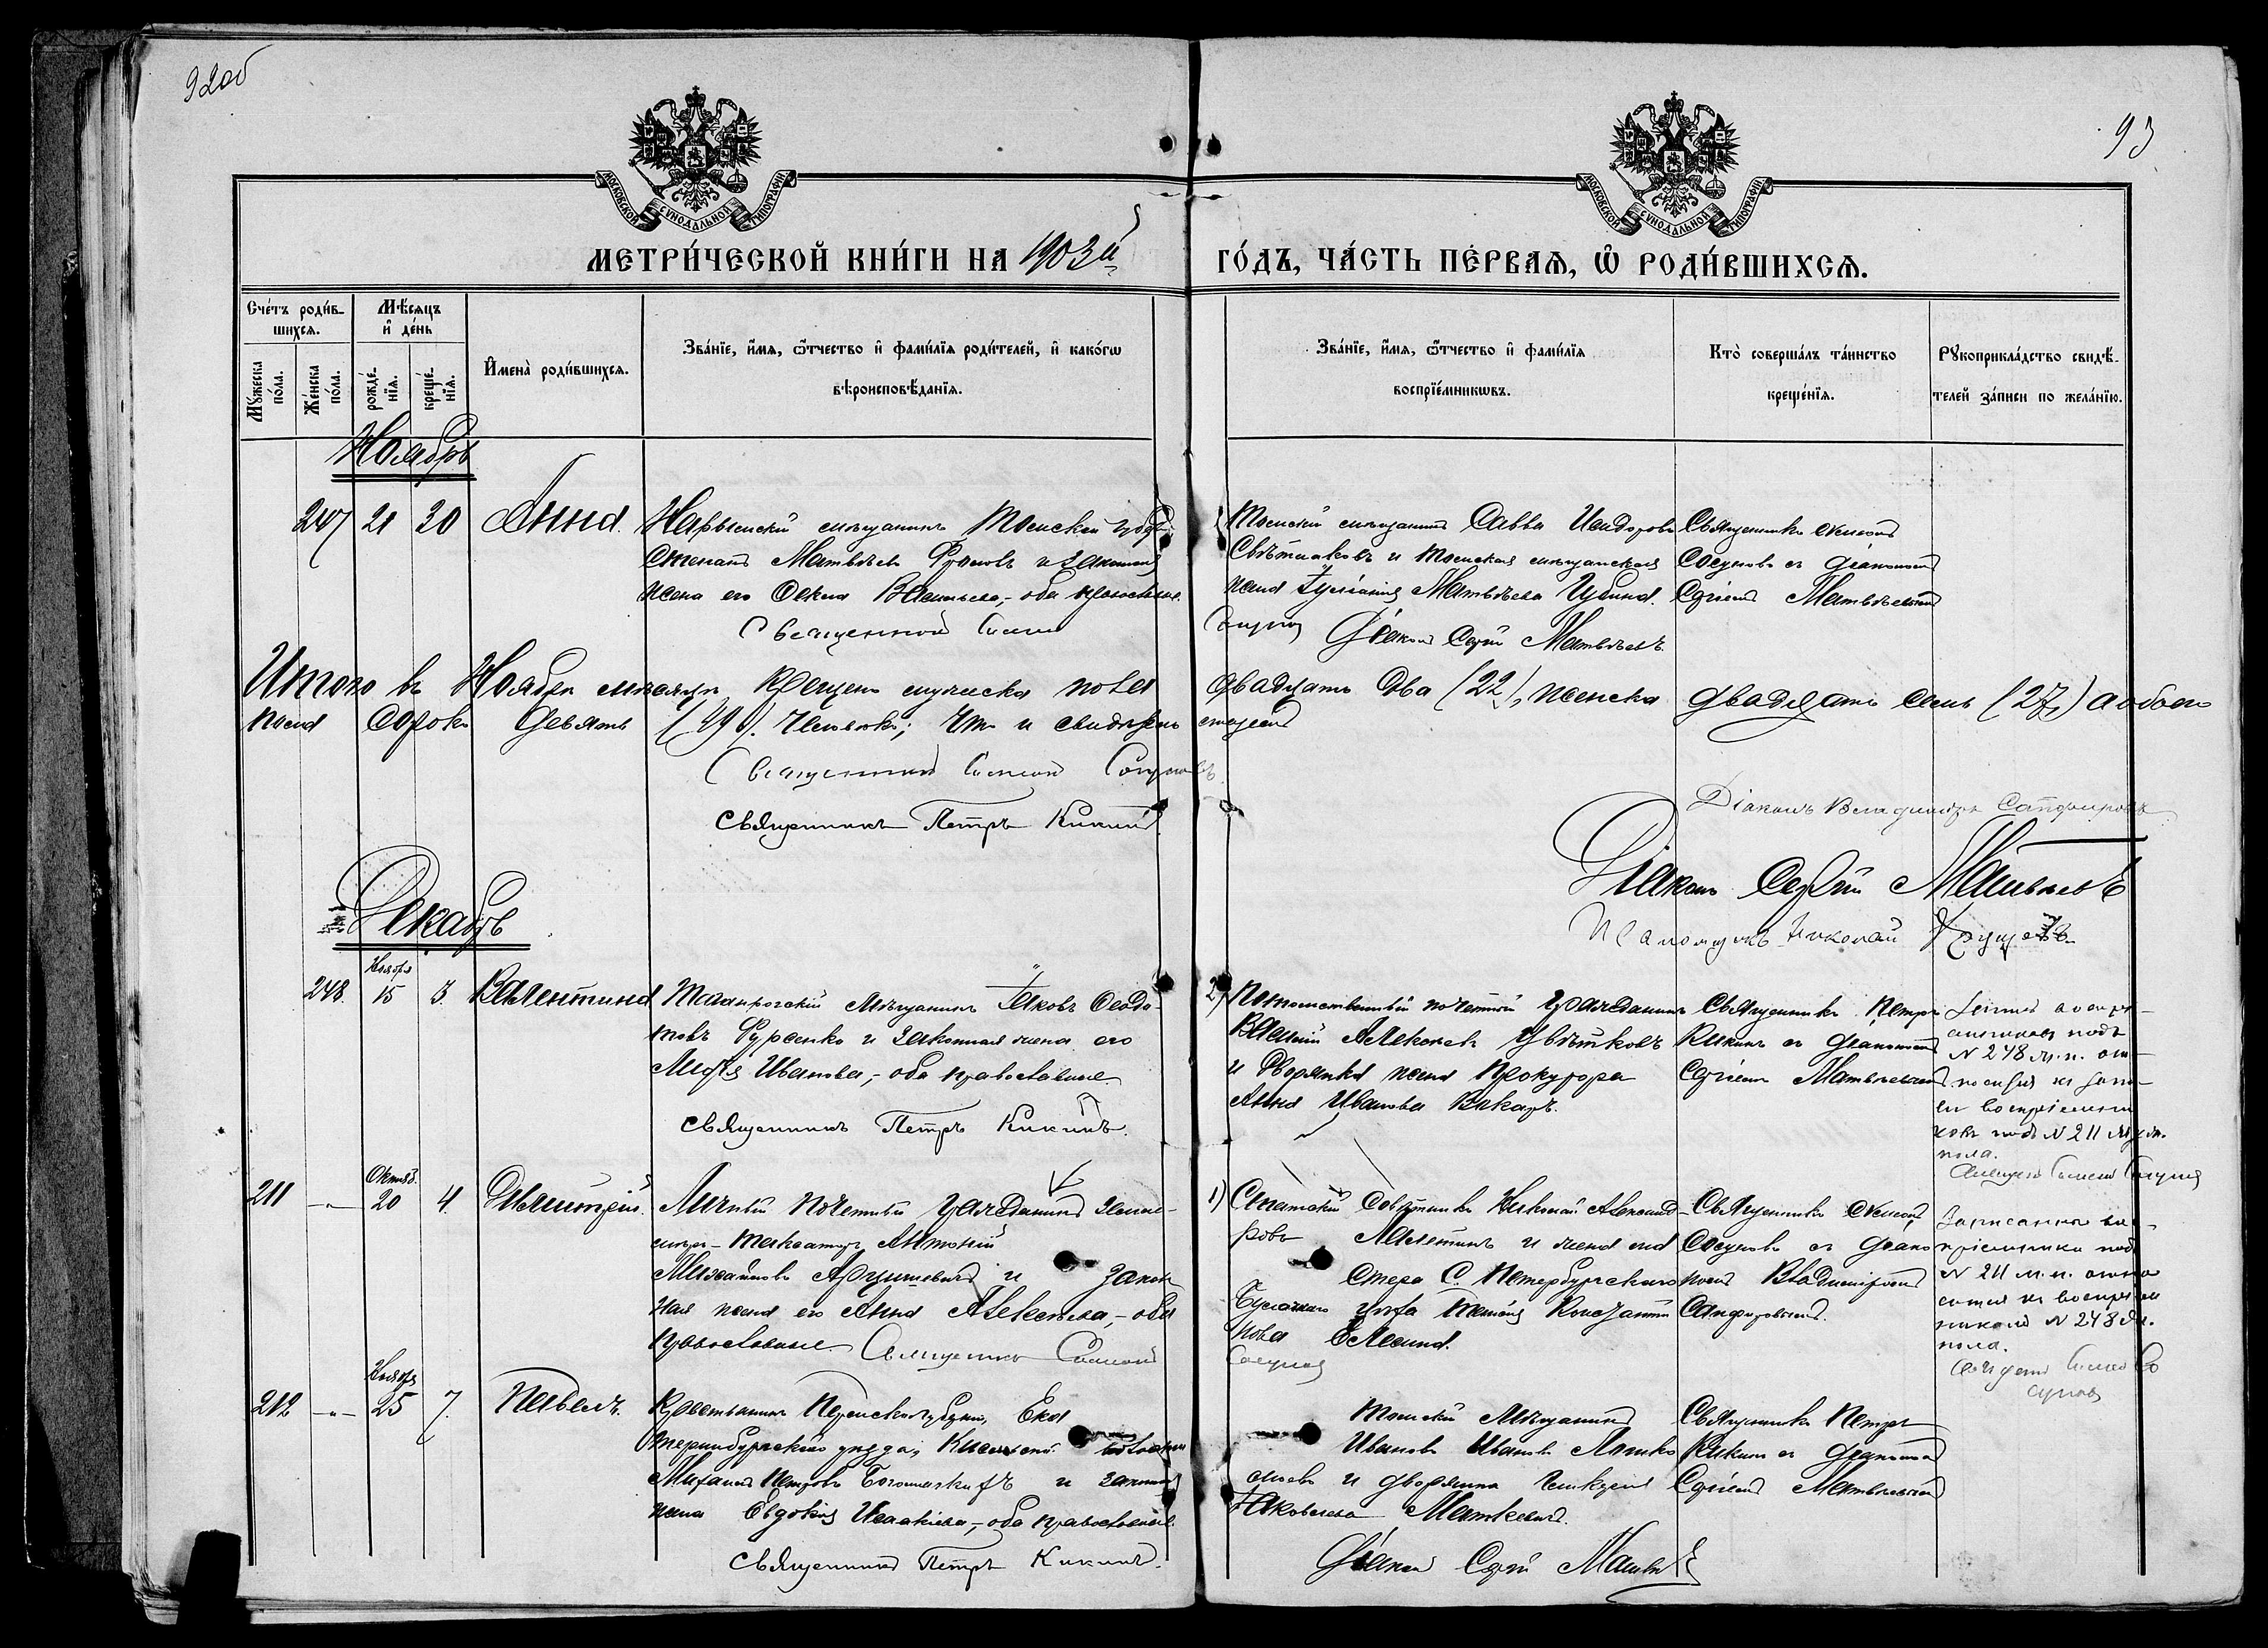 92об
93
МОСКОВСКОЙ СУНОДАЛЬНОЙ ТИПОГРАФІИ
МОСКОВСКОЙ СУНОДАЛЬНОЙ ТИПОГРАФІИ
МЕТРИ́ЧЕСКОЙ КНИ́ГИ НА 1903й
ГО́ДЪ, ЧА́СТЬ ПЕ́РВАѦ, Ѽ РОДИ́ВШИХСѦ.
Сче́тъ роди́в-
шихсѧ.
Мꙋ́жеска по́ла.
Же́нска по́ла.
Мѣ́сѧцъ
и҆ де́нь
рожде́-
нїѧ.
креще́-
нїѧ.
И҆мена̀ роди́вшихсѧ.
Зва́нїе, и҆́мѧ, ѻ҆́тчество и҆ фами́лїѧ роди́телей, и҆ како́гѡ
вѣроисповѣ́данїѧ.
Зва́нїе, и҆́мѧ, ѻ҆́тчество и҆ фами́лїѧ
воспрїе́мникѡвъ.
Кто̀ соверша́лъ та́инство
креще́нїѧ.
Рꙋкоприкла́дство свидѣ́-
телей за́писи по жела́нїю.
Ноябрь
247 21 30 Анна.
Нарымскій мѣщанинъ Томской губ.
Степанъ Матвѣевъ и законная
жена его Васильева, - оба православные.
Священникъ Симеонъ
Томскій мѣщанинъ Савва Исидоровъ
и томская мѣщанская
жена Матвѣева
Сосуновъ Діаконъ Сергій Матвѣевъ
Священникъ Симеонъ
Сосуновъ съ діакономъ
Сергіемъ Матвѣевымъ
Итого въ Ноябрѣ мѣсяцѣ крещено мужеска пола
двадцать два (22), женска двадцать семь (27) а обоего
пола сорокъ девять (49) человѣкъ; что и свидѣтельствуемъ
Священникъ Симеонъ Сосуновъ
Священникъ Петръ Кикинъ.
Діаконъ Владиміръ Сапфировъ
Діаконъ Сергій Матвѣевъ
Псаломщикъ Николай
Декабрь
248. Ноября 15 3. Валентина
Таганрогскій мѣщанинъ Яковъ Ѳеодо-
товъ Фурсенко и законная жена его
Марія Иванова, - оба православные.
Священникъ Петръ Кикинъ.
2) Потомственный почетный гражданинъ
Василій Алексѣевъ Цвѣтковъ
и дворянка жена прокурора
Анна Иванова Вакаръ.
Священникъ Петръ
Кикинъ съ діакономъ
Сергіемъ Матвѣевымъ
подъ
№ 248 ж. п. от-
носится къ запи-
си воспріемни-
ковъ подъ № 211 муж.
пола.
Священникъ Симеонъ Сосуновъ
211 -"- Октяб. 20 4. Димитрій.
Личный почетный гражданинъ землемѣръ-таксаторъ Антоній
Михайловъ и закон
ная жена его Анна Алексѣева, - оба
православные. Священникъ Симеонъ
1) Статскій Совѣтникъ Николай Александ-
ровъ и жена
С. Петербургскаго
Константи
нова
Сосуновъ
Священникъ Симеонъ
Сосуновъ съ діако
номъ Владиміромъ
Сапфировымъ.
Записанные вос-
пріемники подъ
№ 211 м. п. отно
сятся къ воспріем
никамъ № 248 ж.
пола.
Священникъ Симеонъ Со
суновъ
212 -"- Ноября 25 7. Павелъ.
Крестьянинъ Пермской губерніи, Ека
теринбургскаго уѣзда, волости
Михаилъ Петровъ и законная
жена Евдокія Исаакіева, - оба православные.
Священникъ Петръ Кикинъ.
Томскій мѣщанинъ
Иванъ Ивановъ
и дворянка
Яковлева Маткевичъ.
Діаконъ Сергій Матвѣевъ
Священникъ Петръ
Кикинъ съ діакономъ
Сергіемъ Матвѣевымъ